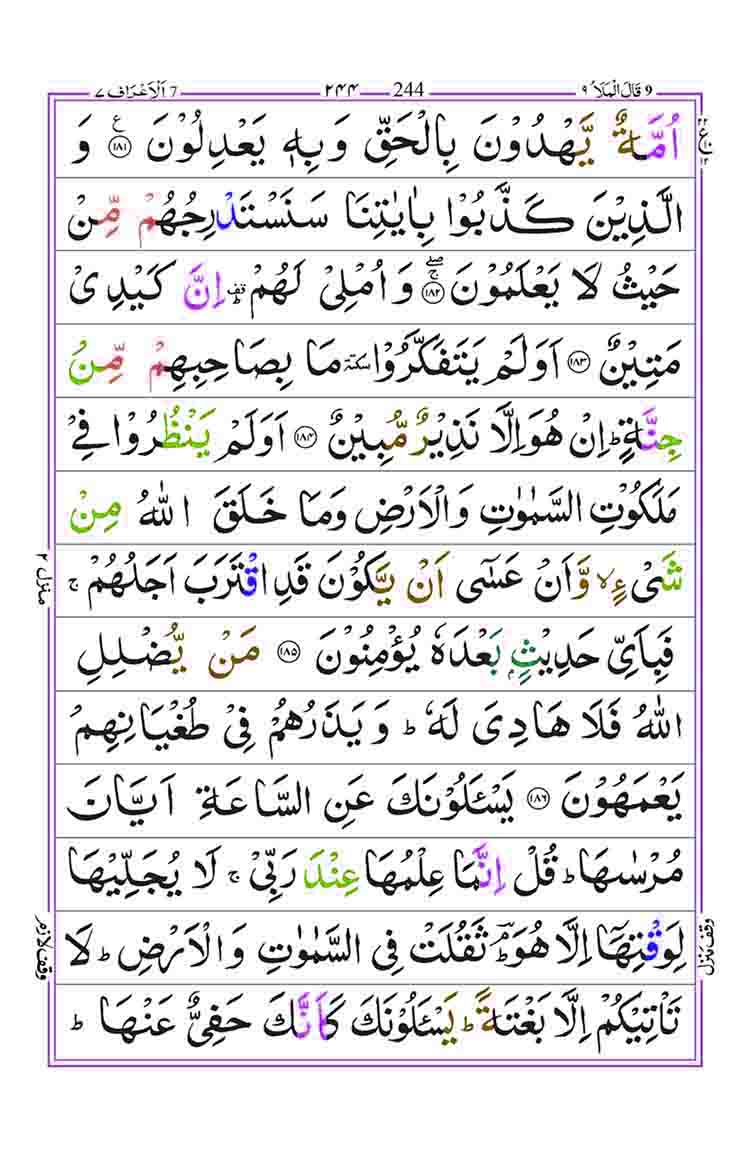 ٩ قَالَ الْمَلَاُ 9 244 ٢٤٤ 7 اَلْاَعْرَاف ٧
اُمَّةٌ يَّهْدُوْنَ بِالْحَقِّ وَبِهٖ يَعْدِلُوْنَ ۝١٨١ ع وَ
الَّذِيْنَ كَذَّبُوْا بِاٰيٰتِنَا سَنَسْتَدْرِجُهُمْ مِّنْ
حَيْثُ لَا يَعْلَمُوْنَ ۝١٨٢ وَاُمْلِيْ لَهُمْ قف اِنَّ كَيْدِيْ
مَتِيْنٌ ۝١٨٣ اَوَلَمْ يَتَفَكَّرُوْا سكتة مَا بِصَاحِبِهِمْ مِّنْ
جِنَّةٍ ؕ اِنْ هُوَ اِلَّا نَذِيْرٌ مُّبِيْنٌ ۝١٨٤ اَوَلَمْ يَنْظُرُوْا فِيْ
مَلَكُوْتِ السَّمٰوٰتِ وَالْاَرْضِ وَمَا خَلَقَ اللّٰهُ مِنْ
شَيْءٍ ۙ وَّاَنْ عَسٰٓى اَنْ يَّكُوْنَ قَدِ اقْتَرَبَ اَجَلُهُمْ ۚ
فَبِاَيِّ حَدِيْثٍۭ بَعْدَهٗ يُؤْمِنُوْنَ ۝١٨٥ مَنْ يُّضْلِلِ
اللّٰهُ فَلَا هَادِيَ لَهٗ ؕ وَيَذَرُهُمْ فِيْ طُغْيَانِهِمْ
يَعْمَهُوْنَ ۝١٨٦ يَسْـَٔلُوْنَكَ عَنِ السَّاعَةِ اَيَّانَ
مُرْسٰىهَا ؕ قُلْ اِنَّمَا عِلْمُهَا عِنْدَ رَبِّيْ ۚ لَا يُجَلِّيْهَا
لِوَقْتِهَاۤ اِلَّا هُوَ ؕۘ ثَقُلَتْ فِي السَّمٰوٰتِ وَالْاَرْضِ ؕ لَا
تَاْتِيْكُمْ اِلَّا بَغْتَةً ؕ يَسْـَٔلُوْنَكَ كَاَنَّكَ حَفِيٌّ عَنْهَا ؕ
منزل ٢
وقف منزل
وقف لازم